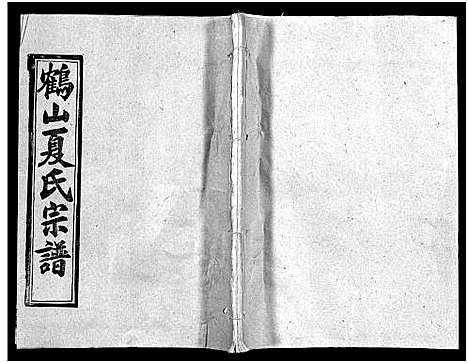 鶴山夏氏宗譜